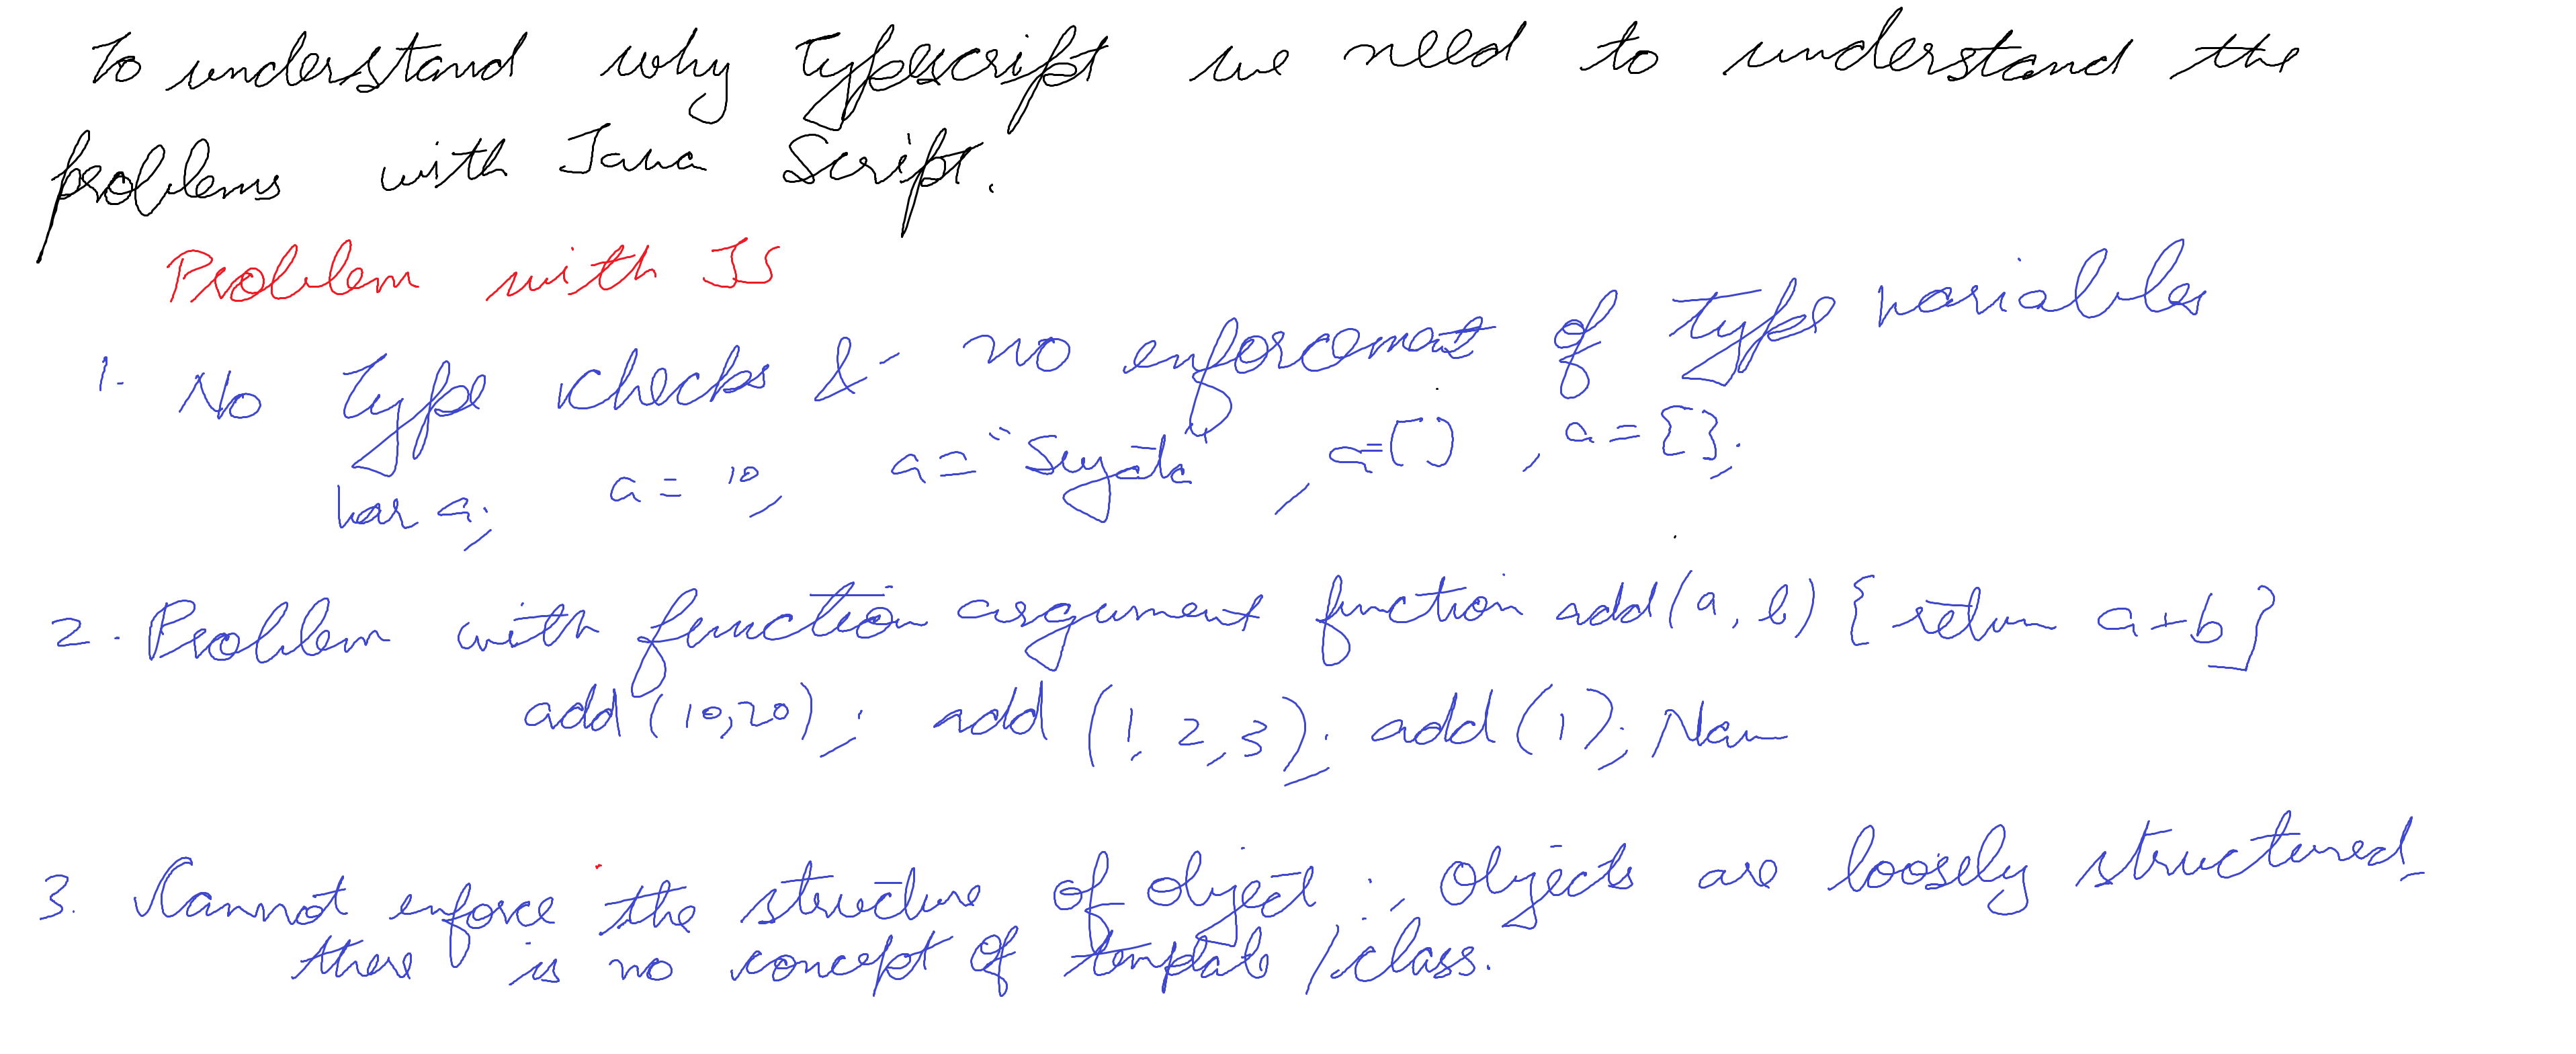 To understand why Typescript we need to understand the
problems with Java Script.
Problem with JS
1. No Type checks & no enforcement of type variables
var a; a = 10, a = "Sujata", a=[] , a = {};
2. Problem with function argument function add(a, b) { return a+b}
add (10,20); add (1, 2, 3); add (1); Nan
3. Cannot enforce the structure of object :, Objects are loosely structured.
there is no concept of template / class.